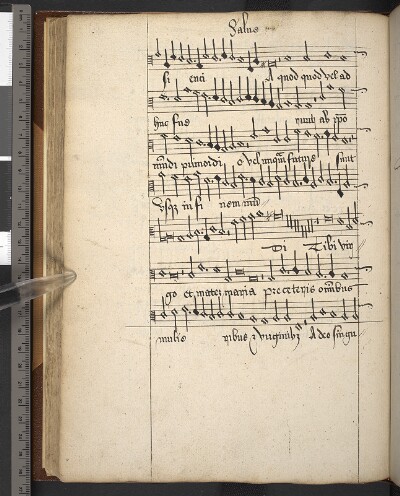 Salue
si enti A quod quod vel ad
huc fue runt ab ipo
mudi primordi o vel unqm future sunt
vsqz in fi nem mu
Di Tibi vir
go et mater maria pre ceteris omibus
mulie ribus z virginibz A deo singu